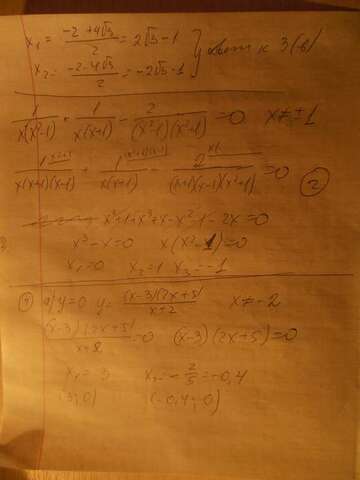 x₁ = (-2+4√3)/2 = 2√3-1
x₂ = (-2-4√3)/2 = -2√3-1 } к 3(в)
1/(x(x²-1)) + 1/(x(x+1)) - 2/((x²-1)(x²+1)) = 0 x≠±1
1/(x(x+1)(x-1)) + 1/(x(x+1)) - 2/((x+1)(x-1)(x²+1)) = 0 (2)
x³+1+x³+x-x²-1-2x=0
x³-x=0 x(x²-1)=0
x₁=0 x₂=1 x₃=-1
(4) a) y=0 y=(x-3)(2x+5)/(x+2) x≠-2
(x-3)(2x+5)/(x+2)=0 (x-3)(2x+5)=0
x₁=3 x₂=-2/5=-0,4
(3;0) (-0,4;0)